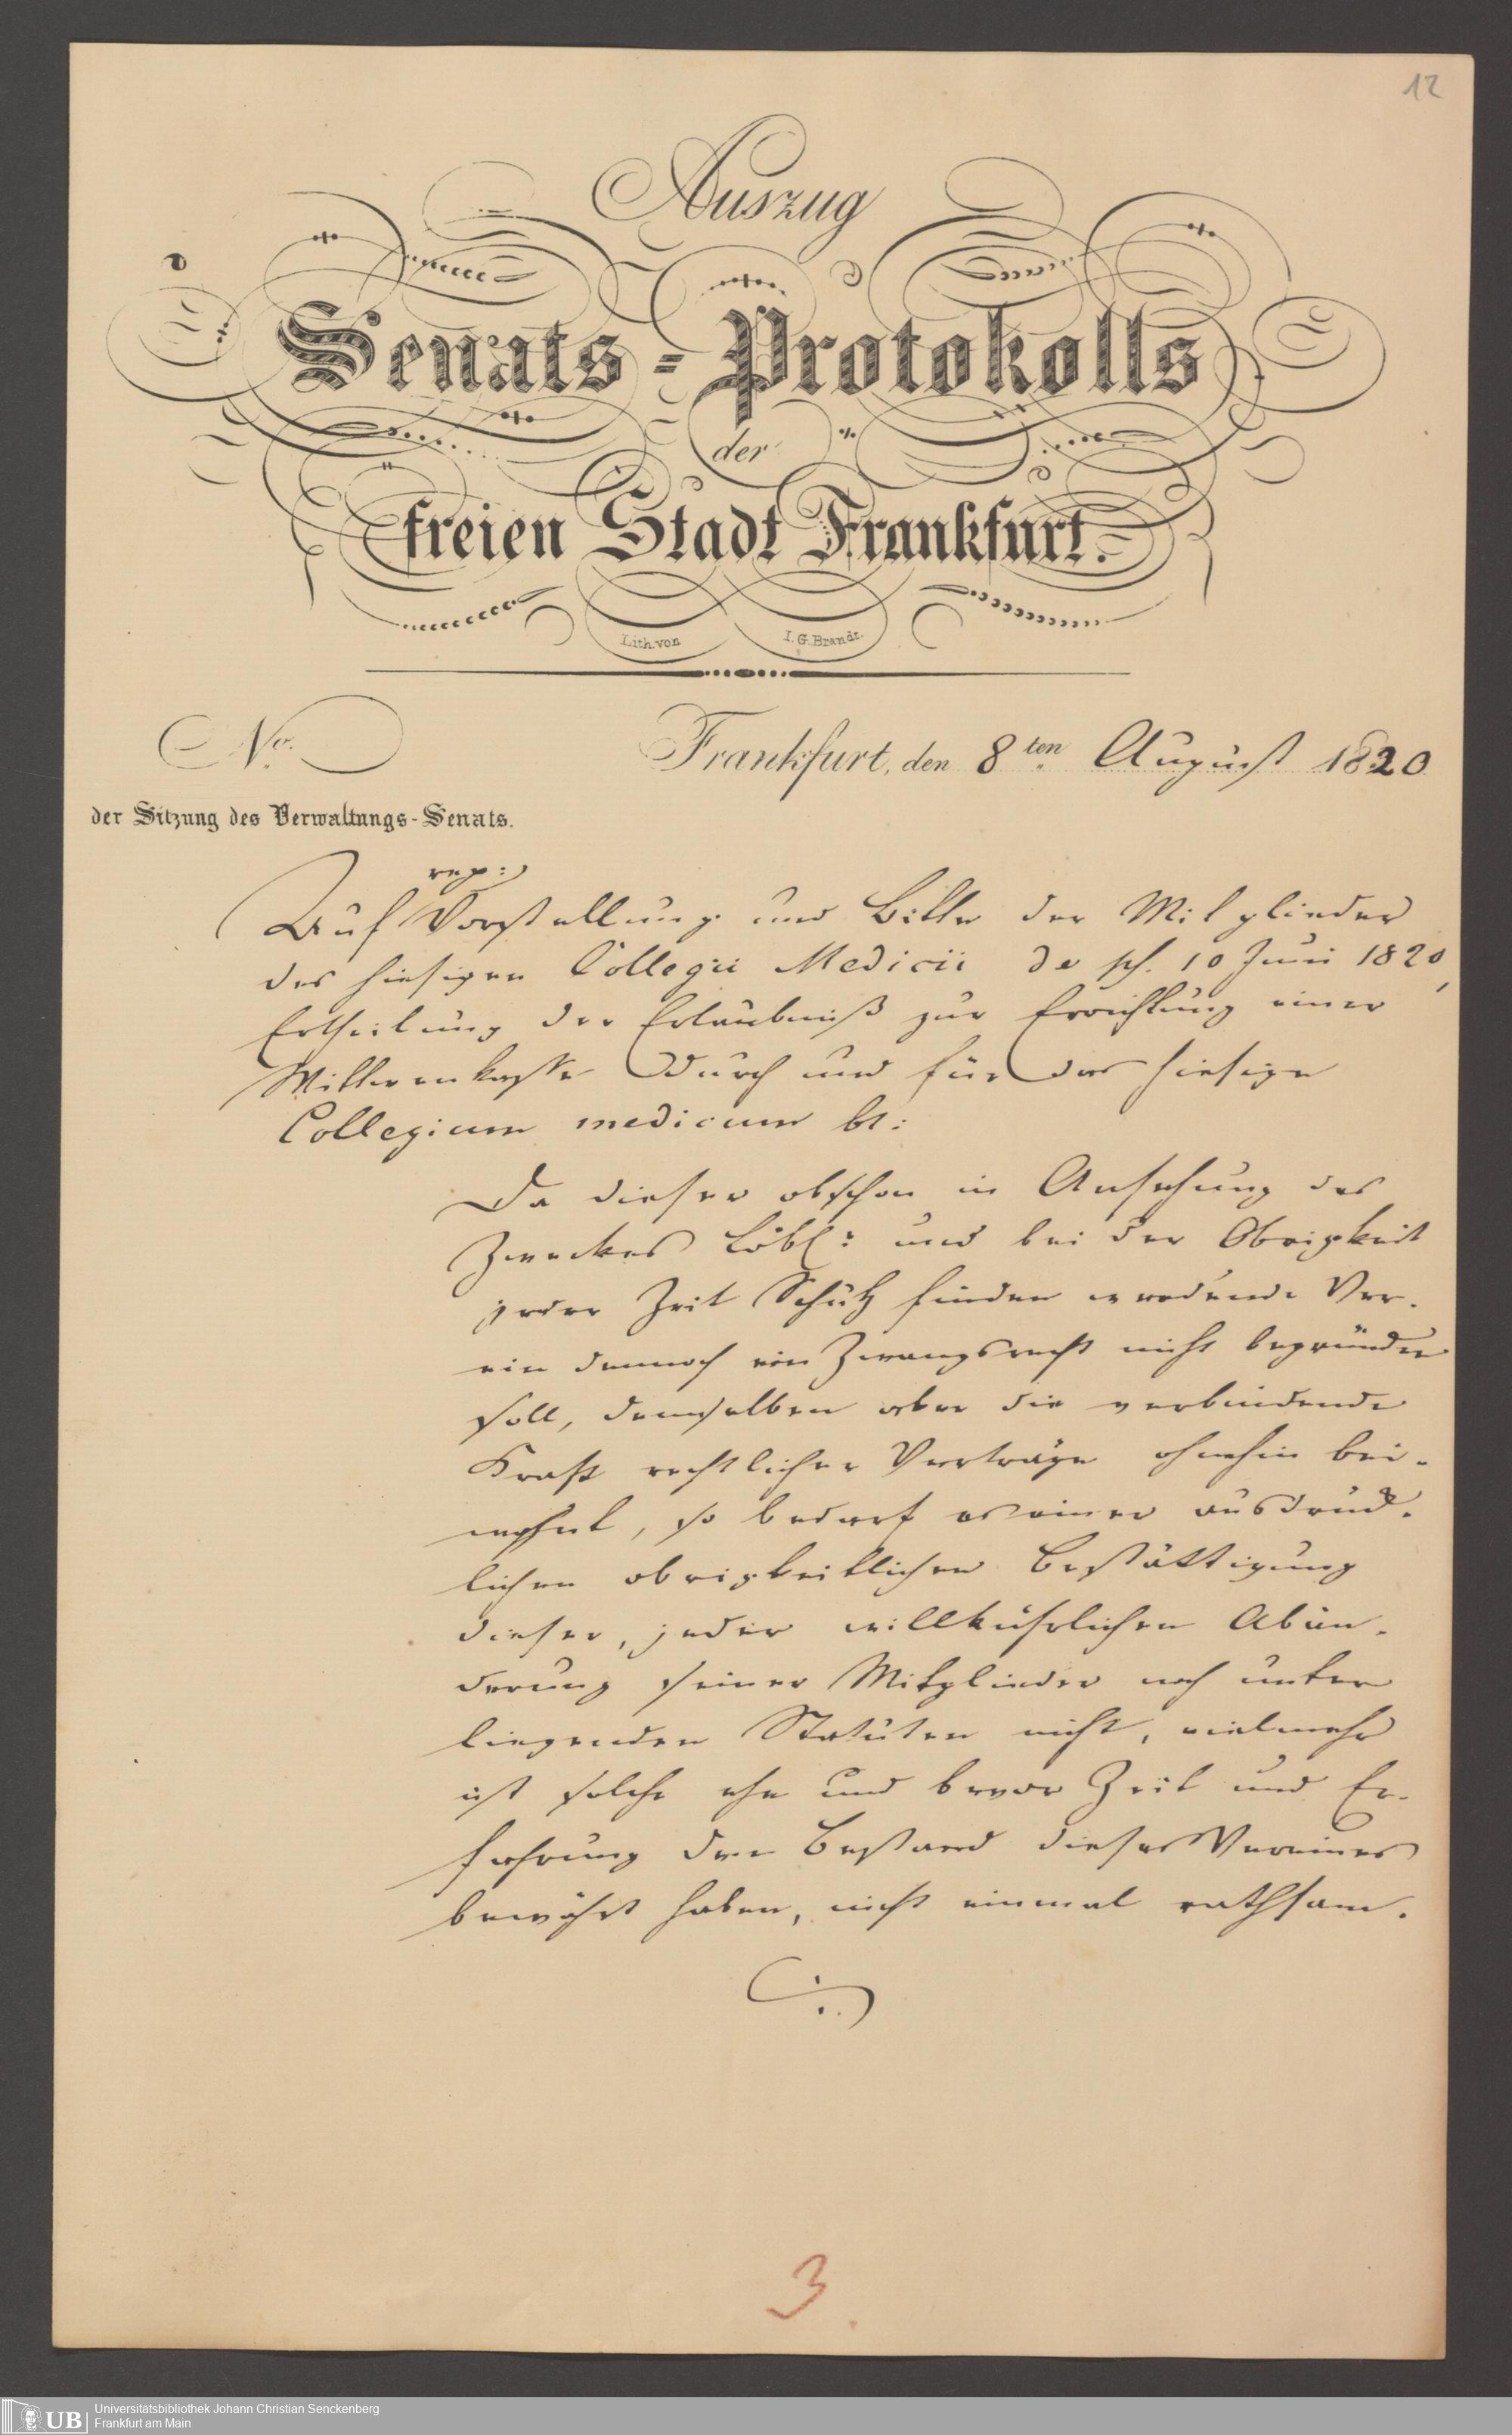 12
Auszug
Senats-Protokolls
der
freien Stadt Frankfurt.
Lith. von I. G. Brandt.
No.
Frankfurt, den 8ten August 1820
der Sitzung des Verwaltungs-Senats.
rep:
Auf Vorstellung und Bitte der Mitglieder
des hiesigen Collegii Medicii de pſ. 10 Juni 1820,
Ertheilung der Erlaubniß zur Errichtung einer
Wittwenkasse durch und für das hiesige
Collegium medicum bt:
Da dieser obschon in Ansehung des
Zweckes Löbl: und bei der Obrigkeit
jeder Zeit Schutz finden werdende Ver-
ein dennoch ein Zwangsrecht nicht begründen
soll, demselben aber die verbindende
Kraft rechtlicher Verträge ohnehin bei-
wohnt, so bedarf es einer ausdrück-
lichen obrigkeitlichen Bestättigung
dieser, jeder willkührlichen Abän-
derung seiner Mitglieder noch unter
liegenden Statuten nicht, vielmehr
ist solche ehe und bevor Zeit und Er-
fahrung den Bestand dieses Vereines
bewährt haben, nicht einmal rathsam.
3
UB
Universitätsbibliothek Johann Christian Senckenberg
Frankfurt am Main